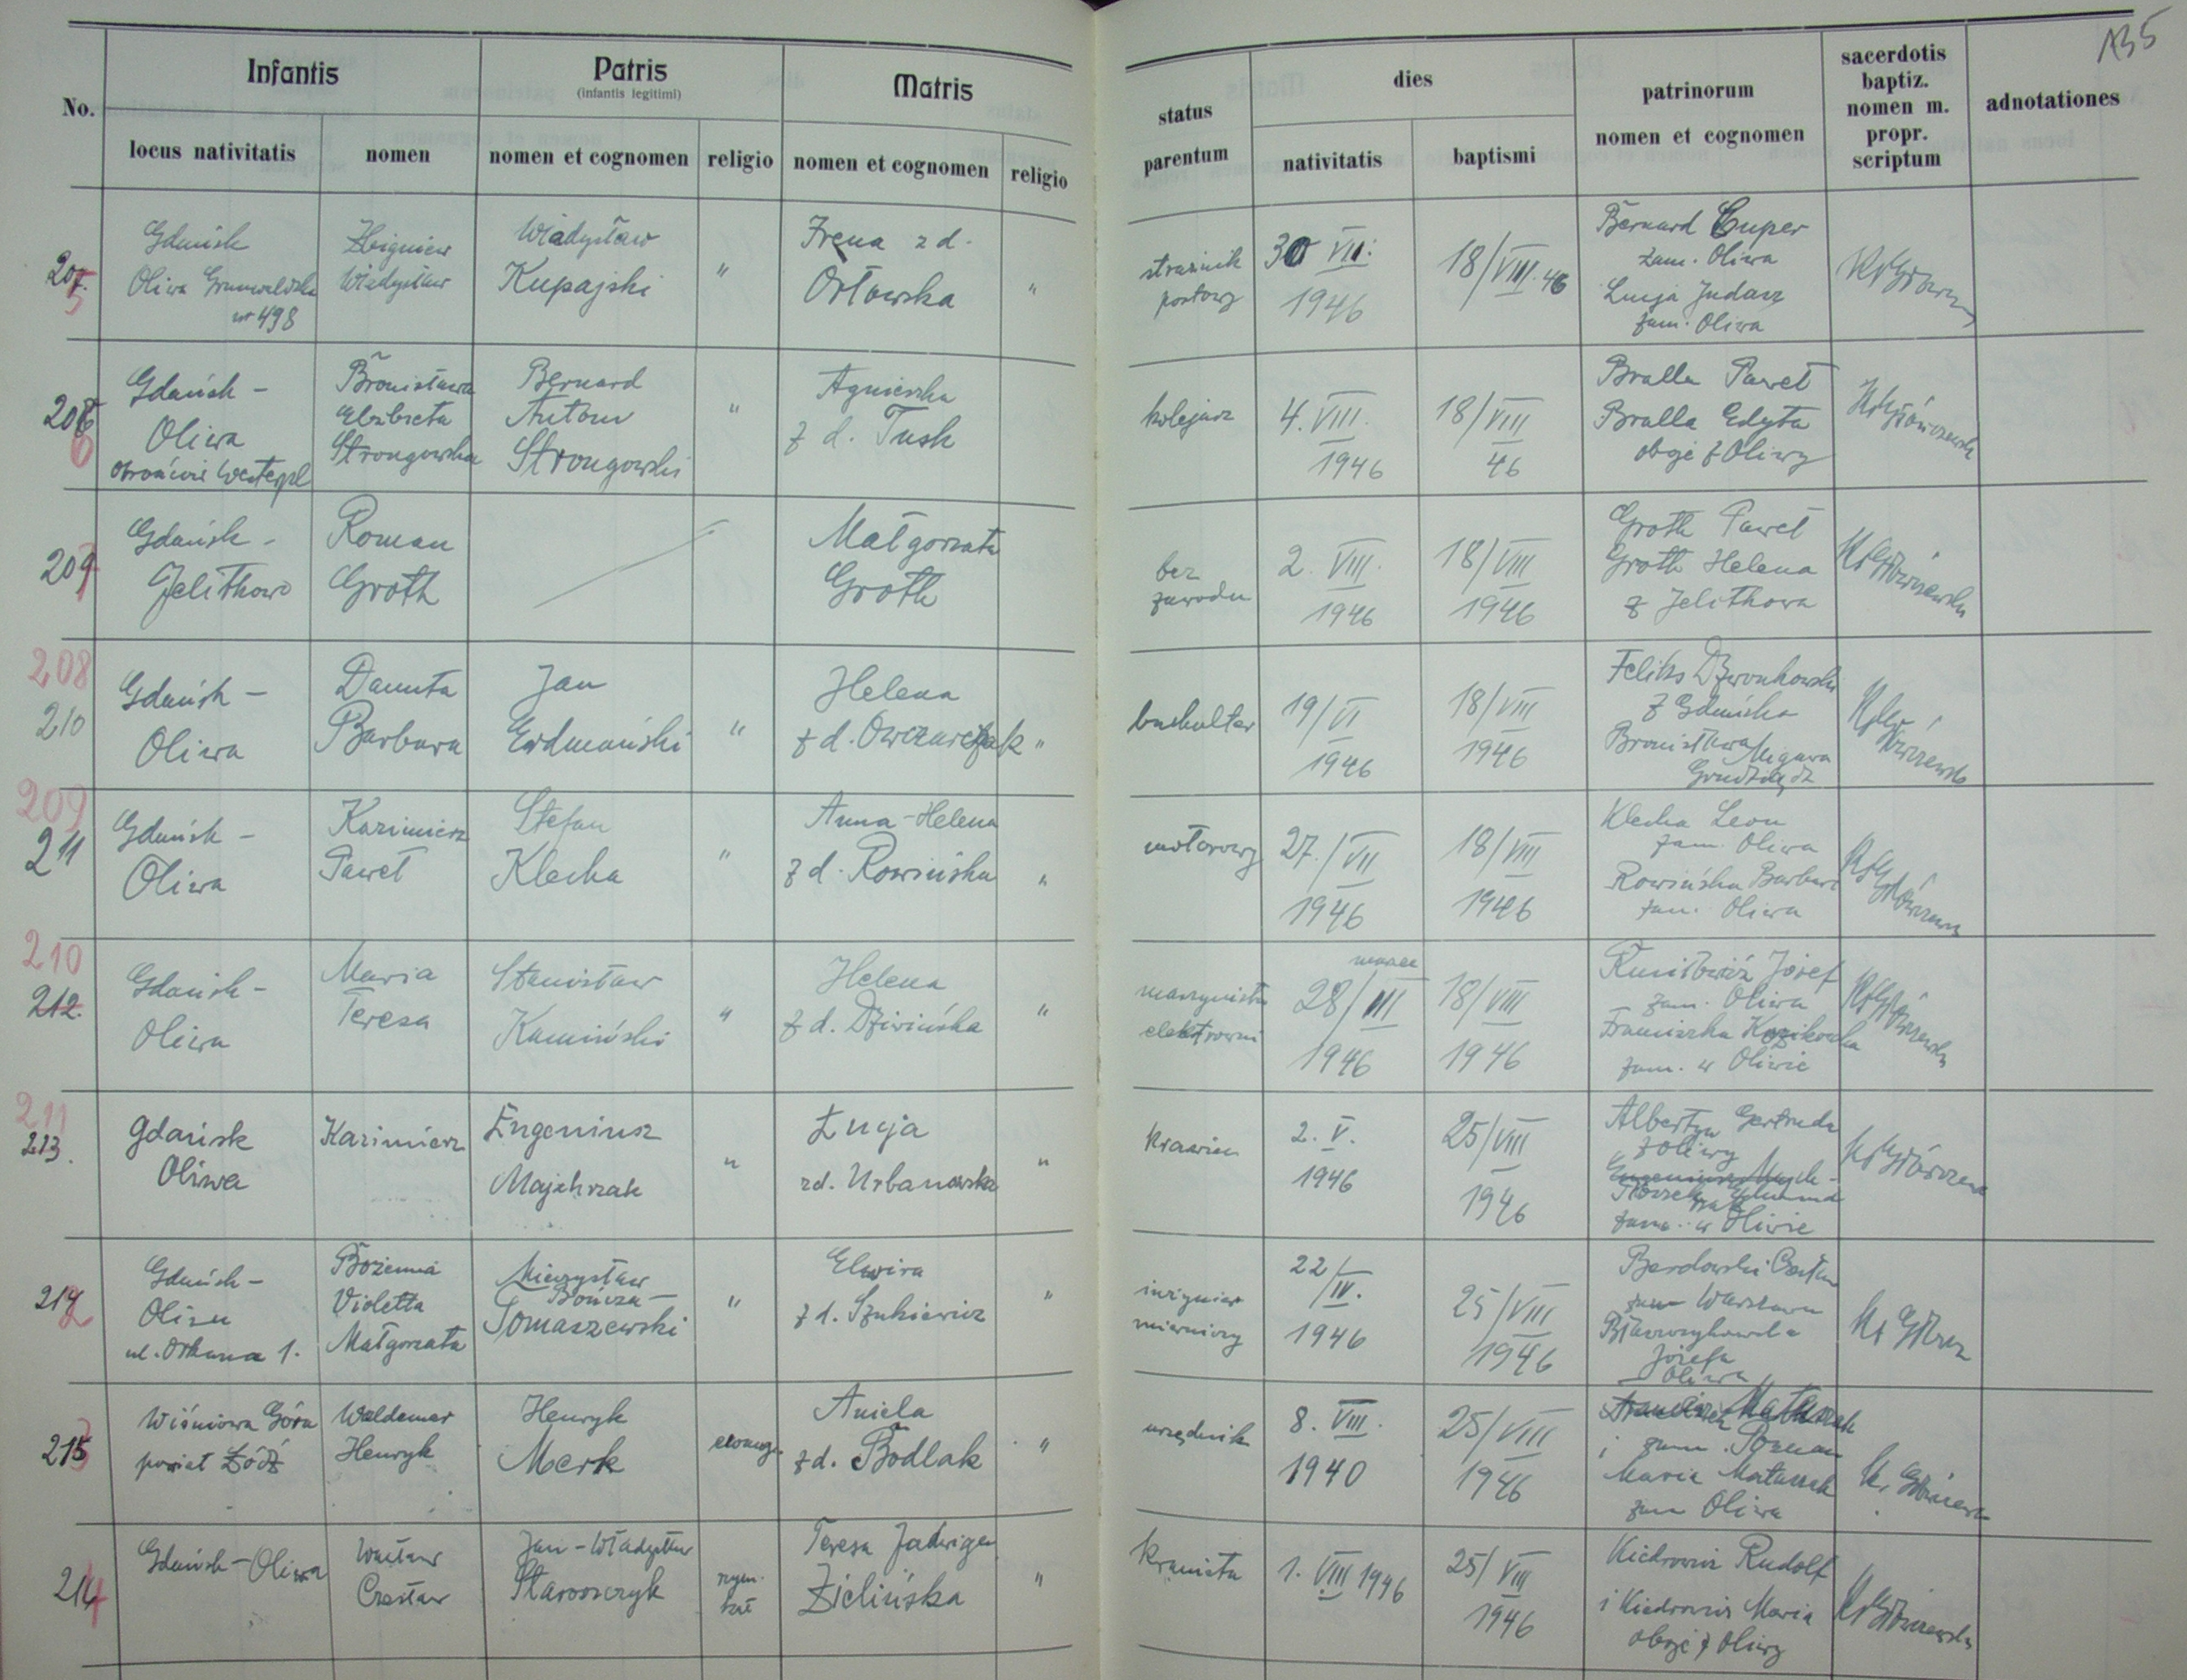 135
Infantis
Patris
(infantis legitimi)
Matris
status
parentum
dies
patrinorum
nomen et cognomen
sacerdotis
baptiz.
nomen m.
propr.
scriptum
adnotationes
No.
locus nativitatis
nomen
nomen et cognomen
religio
nomen et cognomen
religio
nativitatis
baptismi
Gdańsk
Oliwa Grunwaldzka
nr 498
Zbigniew
Władysław
Władysław
Kupajski
"
Irena z d.
Orłowska
"
strażnik
30 VII.
1946
18/VIII.46
Bernard Cuper
zam. Oliwa
Lucja Judasz
zam. Oliwa
Gdańsk -
Oliwa
Bronisława
Elżbieta
Strongowska
Bernard
Antoni
Strongowski
"
Agnieszka
z d. Tusk
kolejarz
4. VIII.
1946
18/VIII
46
Bralla Paweł
Bralla Edyta
oboje z Oliwy
Gdańsk -
Jelitkowo
Roman
Groth
Małgorzata
Groth
bez
zawodu
2. VIII.
1946
18/VIII
1946
Groth Paweł
Groth Helena
z Jelitkowa
208
210
Gdańsk -
Oliwa
Danuta
Barbara
Jan
Erdmański
"
Helena
z d. Owczarczak
"
buchalter
19/VI
1946
18/VIII
1946
Feliks Dzwonkowski
z Gdańska
Bronisława Migawa
Grudziądz
209
211
Gdańsk -
Oliwa
Kazimierz
Paweł
Stefan
Klecha
"
Anna-Helena
z d. Rowińska
"
motorowy
27./VII
1946
18/VIII
1946
Klecha Leon
zam. Oliwa
Rowińska Barbara
zam. Oliwa
210
212.
Gdańsk -
Oliwa
Maria
Teresa
Stanisław
Kamiński
"
Helena
z d. Dziwińska
"
maszynista
elektrowni
marzec
28/III
1946
18/VIII
1946
Józef
zam. Oliwa
Franciszka
zam. w Oliwie
211
213.
Gdańsk
Oliwa
Kazimierz
Eugeniusz
Majchrzak
"
Łucja
zd. Urbanowska
"
krawiec
2. V.
1946
25/VIII
1946
Albertyn Gertruda
z Oliwy
zam. w Oliwie
Gdańsk -
Oliwa
ul. Orkana 1.
Bożenna
Violetta
Małgorzata
Mieczysław
Bończa -
Tomaszewski
"
Elwira
z d. Szukiewicz
"
inżynier
mierniczy
22/IV.
1946
25/VIII
1946
zam Warszawa
Józefa
Oliwa
Wiśniowa Góra
powiat Łódź
Waldemar
Henryk
Henryk
Merk
ewang.
Aniela
zd. Bodlak
"
urzędnik
8. VIII.
1940
25/VIII
1946
i zam. Poznań
Maria Matuszak
zam Oliwa
Gdańsk - Oliwa
Wacław
Czesław
Jan - Władysław
Staroszczyk
rzym.
kat
Teresa Jadwiga
Zielińska
"
1. VIII 1946
25/VIII
1946
Kiedrowicz Rudolf
i Kiedrowicz Maria
oboje z Oliwy